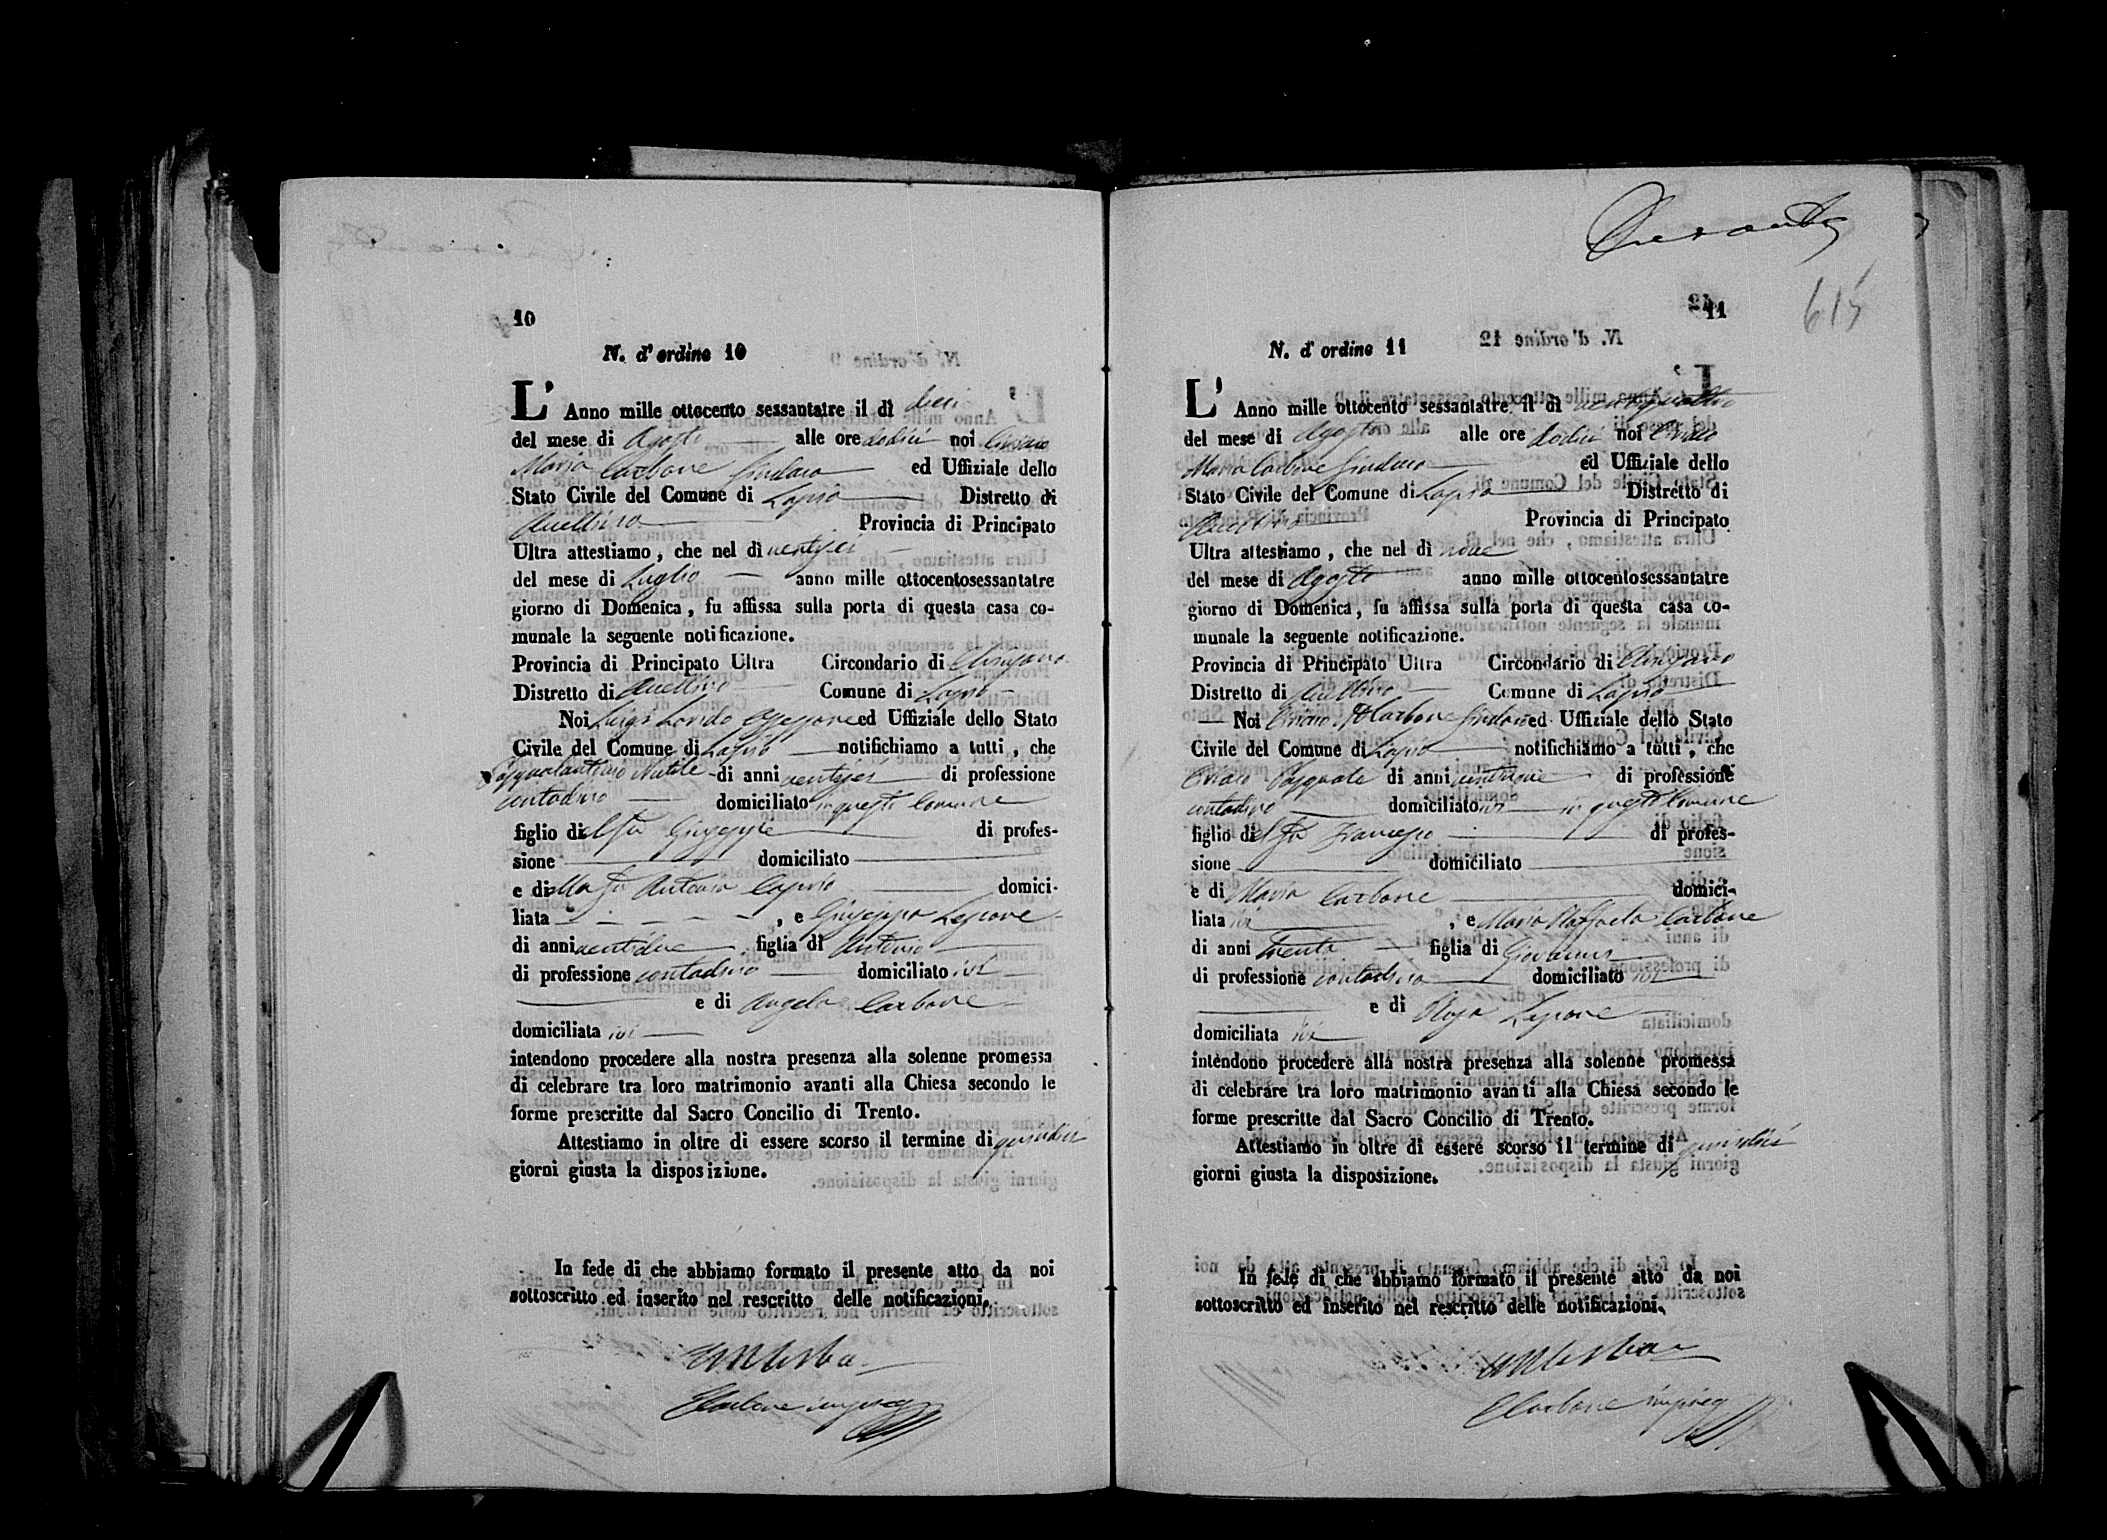 10
N. d'ordine 10
L'Anno mille ottocento sessantatre il dì dieci
del mese di Agosto alle ore dodici noi Ciriaco
Maria Carbone Sindaco ed Uffiziale dello
Stato Civile del Comune di Lapio Distretto di
Avellino Provincia di Principato
Ultra attestiamo, che nel dì ventisei
del mese di Luglio anno mille ottocentosessantatre
giorno di Domenica, fu affissa sulla porta di questa casa co-
munale la seguente notificazione.
Provincia di Principato Ultra Circondario di Chiusano
Distretto di Avellino Comune di Lapio
Noi Luigi ed Uffiziale dello Stato
Civile del Comune di Lapio notifichiamo a tutti, che
Pasqualantonio Nutile di anni ventisei di professione
contadino domiciliato in questo Comune
figlio di Giuseppe di profes-
sione domiciliato
e di Antonia Caprio domici-
liata , e Giuseppa Lepore
di anni ventidue figlia di Antonio
di professione contadino domiciliato ivi
e di Angela Carbone
domiciliata ivi
intendono procedere alla nostra presenza alla solenne promessa
di celebrare tra loro matrimonio avanti alla Chiesa secondo le
forme prescritte dal Sacro Concilio di Trento.
Attestiamo in oltre di essere scorso il termine di quindici
giorni giusta la disposizione.
In fede di che abbiamo formato il presente atto da noi
sottoscritto ed inserito nel rescritto delle notificazioni.
11
615
N. d'ordine 11
L'Anno mille ottocento sessantatre il dì ventiquattro
del mese di Agosto alle ore dodici noi Ciriaco
Maria Carbone Sindaco ed Uffiziale dello
Stato Civile del Comune di Lapio Distretto di
Avellino Provincia di Principato
Ultra attestiamo, che nel dì nove
del mese di Agosto anno mille ottocentosessantatre
giorno di Domenica, fu affissa sulla porta di questa casa co-
munale la seguente notificazione.
Provincia di Principato Ultra Circondario di Chiusano
Distretto di Avellino Comune di Lapio
Noi Ciriaco M. Carbone Sindaco ed Uffiziale dello Stato
Civile del Comune di Lapio notifichiamo a tutti, che
Pasquale di anni di professione
contadino domiciliato in questo Comune
figlio di Francesco di profes-
sione domiciliato
e di Maria Carbone domici-
liata ivi , e Maria Raffaela Carbone
di anni trenta figlia di Giovanni
di professione contadino domiciliato ivi
e di Rosa Lepore
domiciliata ivi
intendono procedere alla nostra presenza alla solenne promessa
di celebrare tra loro matrimonio avanti alla Chiesa secondo le
forme prescritte dal Sacro Concilio di Trento.
Attestiamo in oltre di essere scorso il termine di quindici
giorni giusta la disposizione.
In fede di che abbiamo formato il presente atto da noi
sottoscritto ed inserito nel rescritto delle notificazioni.